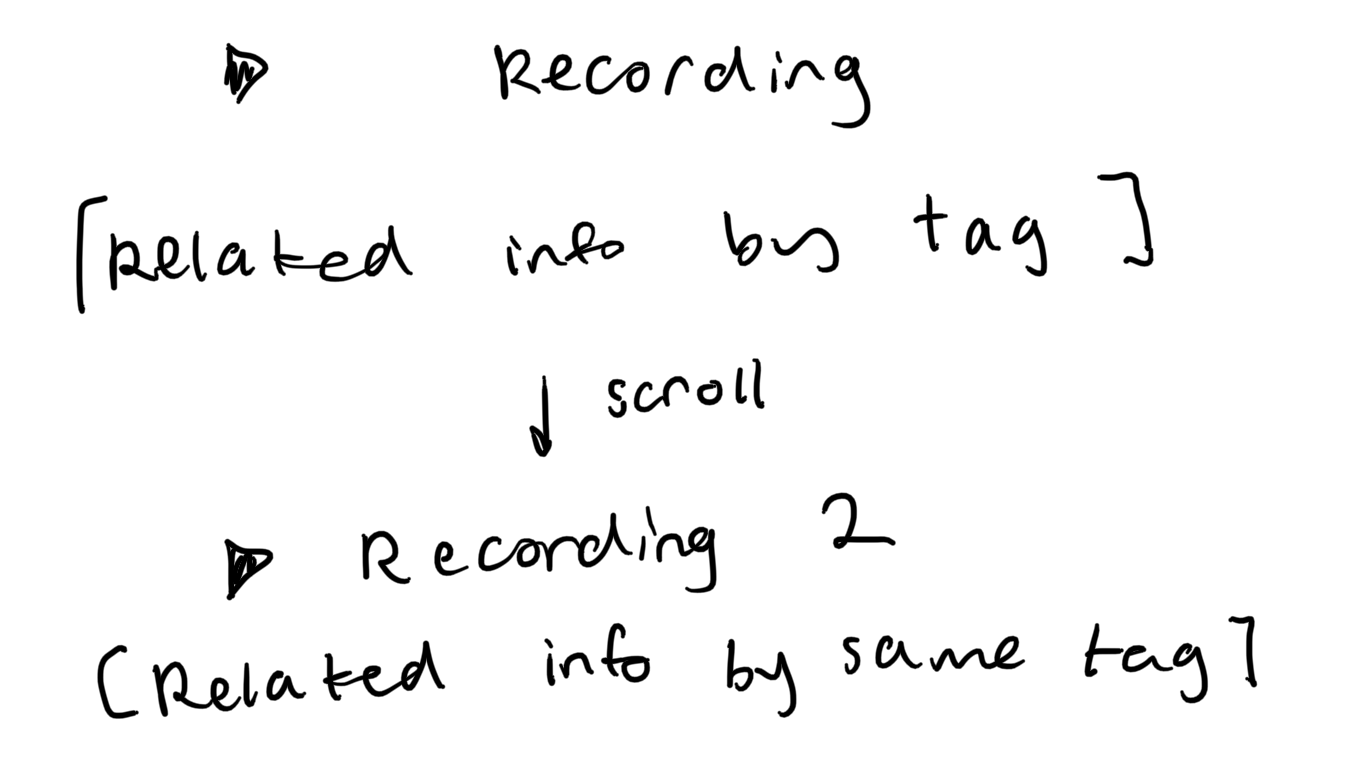 Recording
[Related info by tag]
scroll
Recording 2
[Related info by same tag]